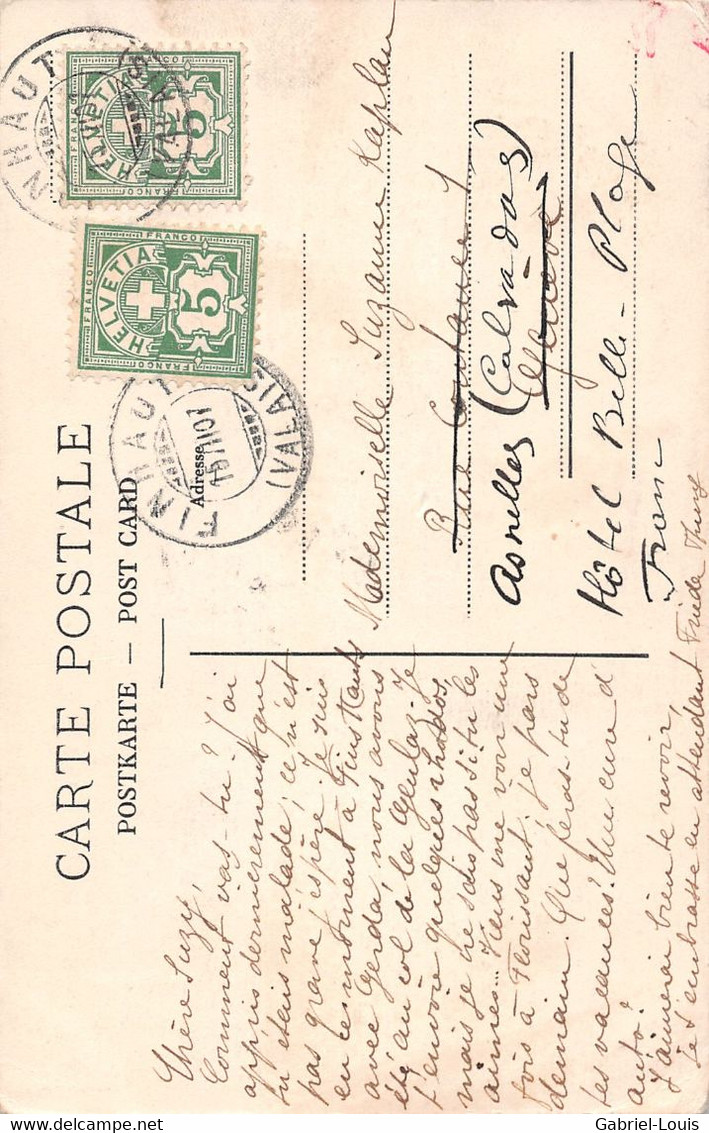 CARTE POSTALE
POSTKARTE — POST CARD
Adresse
FRANCO
HELVETIA
5
FRANCO
FRANCO
FRANCO
HELVETIA
5
FRANCO
FRANCO
FINHAUT
(VALAIS)
FINHAUT
(VALAIS)
Chère Suzy,
Comment vas-tu? J'ai
appris dernièrement que
tu étais malade; ce n'est
pas grave j'espère. Je suis
en ce moment à Finshauts
avec Gerda, nous avons
été au col de la Gueulaz. Je
t'envoie quelques rhodos,
mais je ne sais pas si tu les
aimes... Viens me voir une
fois à Florissant; je pars
demain. Que feras-tu de
tes vacances? Une cure d'
auto?
J'aimerai bien te revoir,
Je t'embrasse en attendant Frieda
Mademoiselle Suzanne Kaplan
Rue
Genève
Asnelles (Calvados)
Hôtel Belle-Plage
France
Gabriel-Louis